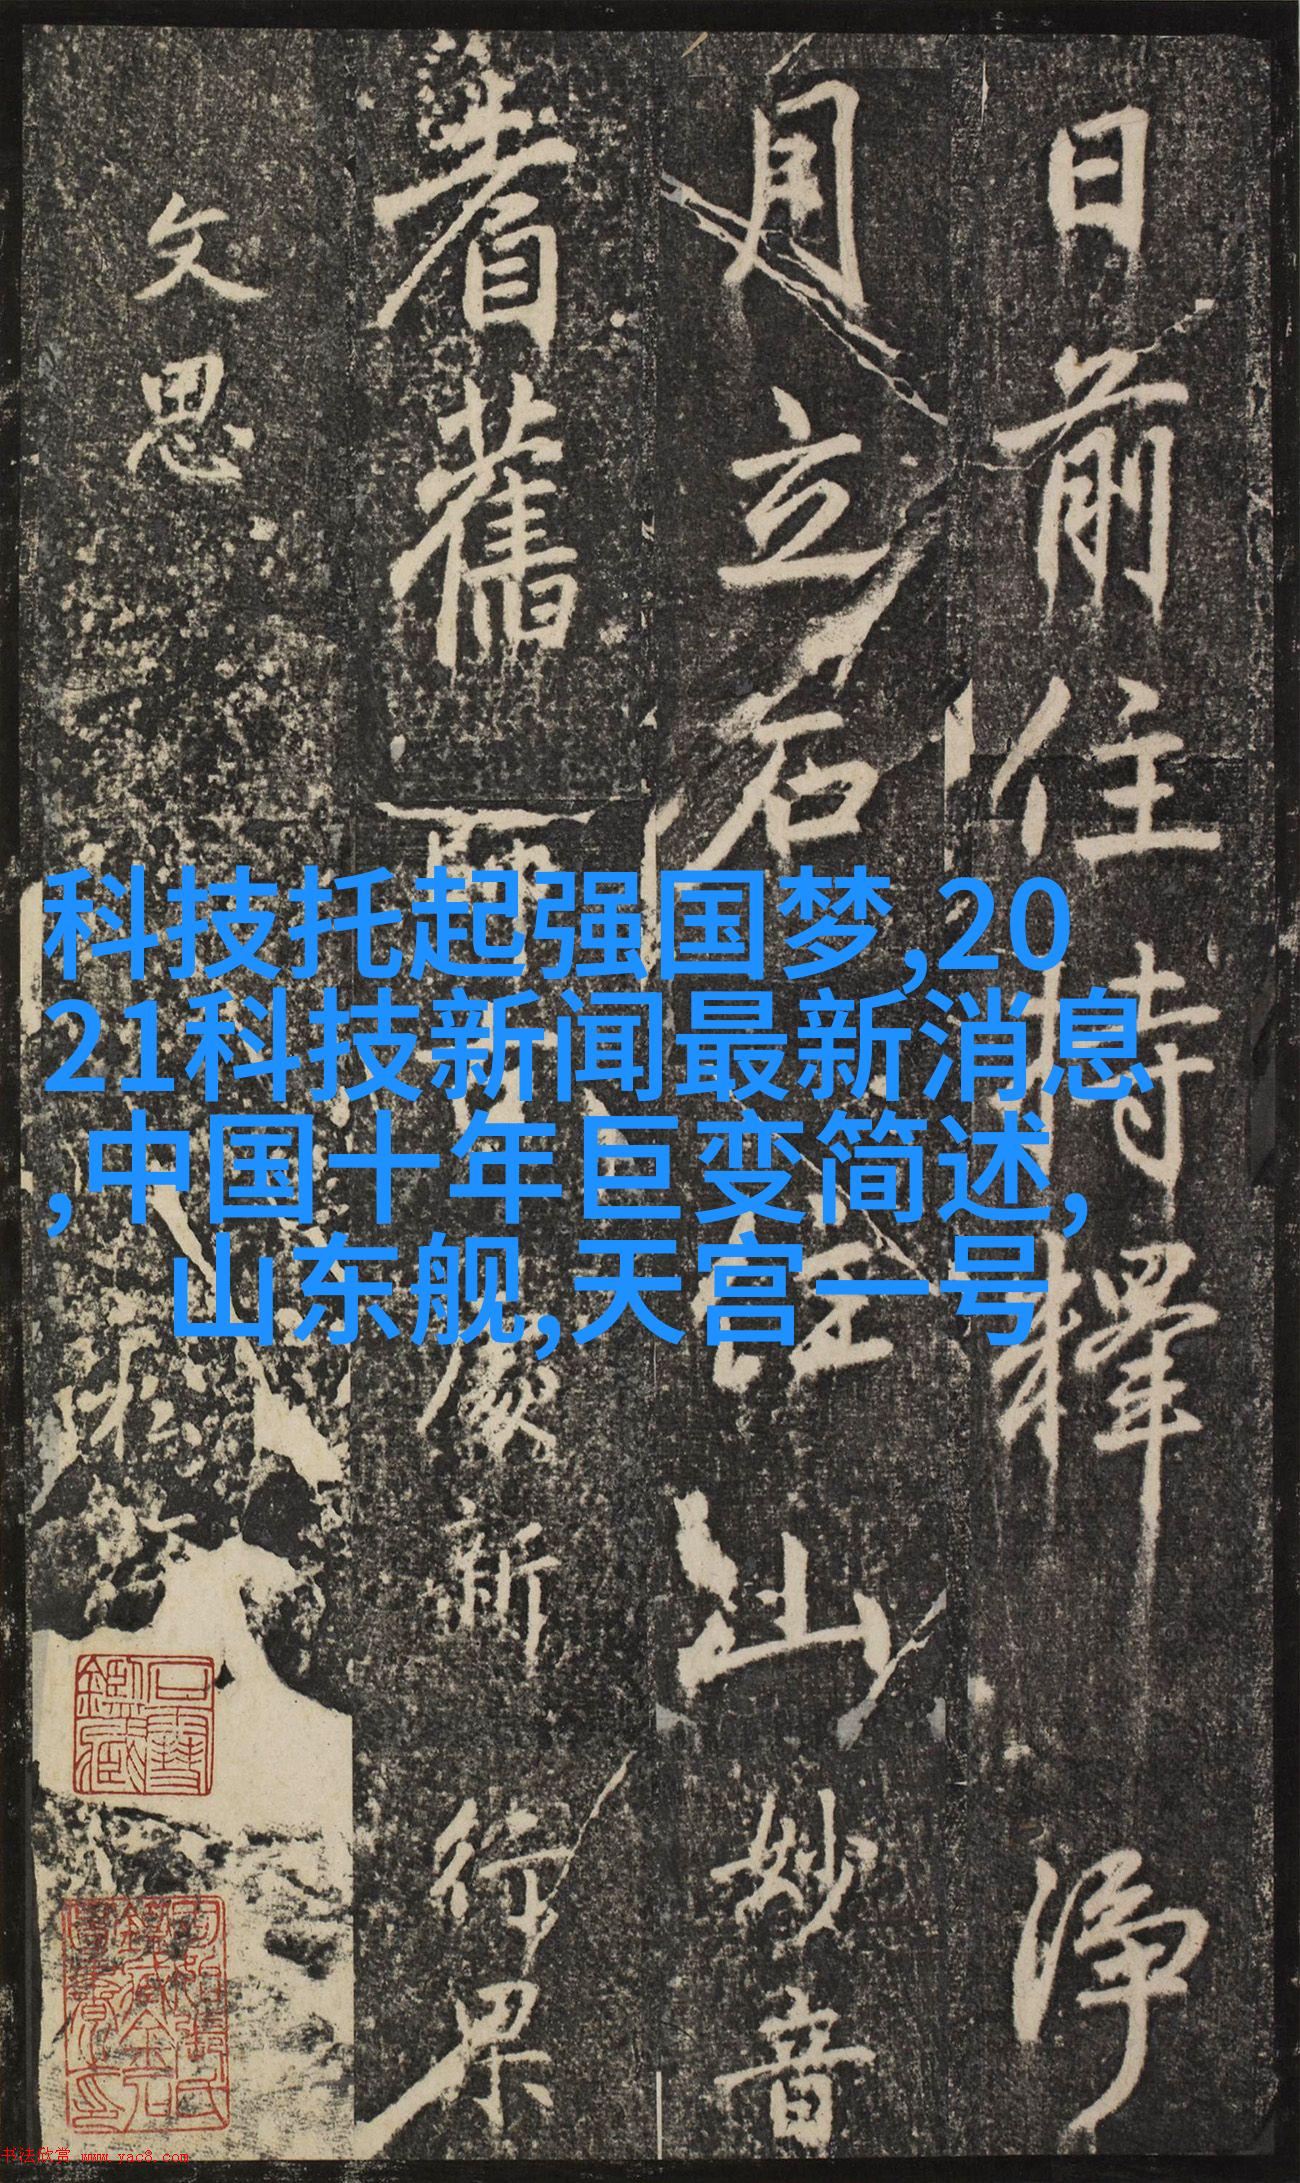 科技托起强国梦,20
21科技新闻最新消息
,中国十年巨变简述,
山东舰,天宫一号
日前住持釋淨
月立石經山妙音
耆舊廢新行果
文思
书法欣赏 www.yac8.com